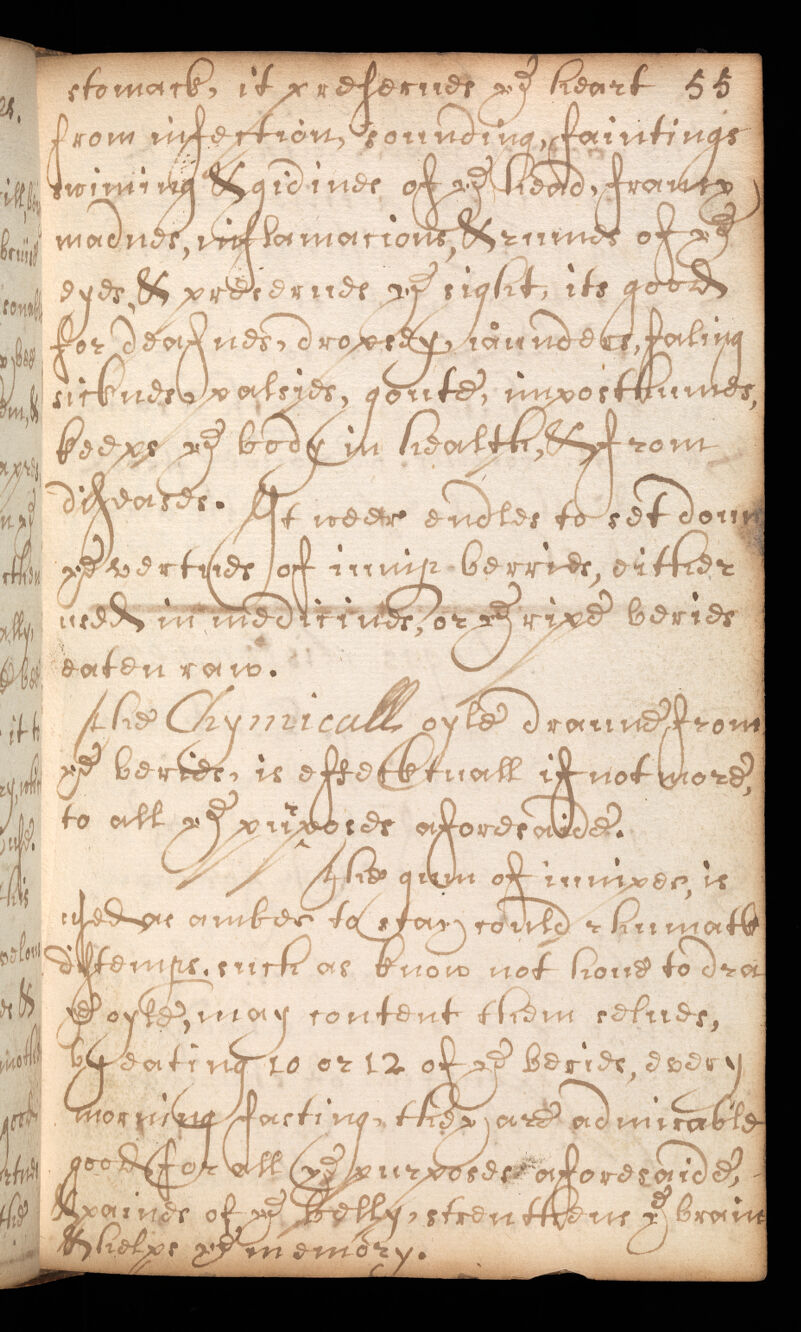 stomack, it preserues ye heart 55
from infection, sounding, faintings
swiming & gidines of ye head, francy
madnes, inflamacions, & rumes of ye
eyes, & preserues ye sight, its good
for deafnes, dropsey, iaunders, faling
sicknes, palsies, goute, imposthumes,
keeps ye body in health, & from
diseases. It weer endles to set doun
ye vertues of iunip berries, either
used in medicines, or ye ripe beries
eaten raw.
the Chymicall oyle draune from
ye beries, is effecktuall if not more,
to all ye purposes aforesaide.
the gum of iuniper, is
used as amber to stay could rhumatk
distemps. such as know not houe to dra
ye oyle, may content them selues,
by eating 10 or 12 of ye beries, every
morning fasting, they are admirable
good for all ye purposes aforesaide,
& paines of ye belly, strenthens ye brain
& helps ye memory.